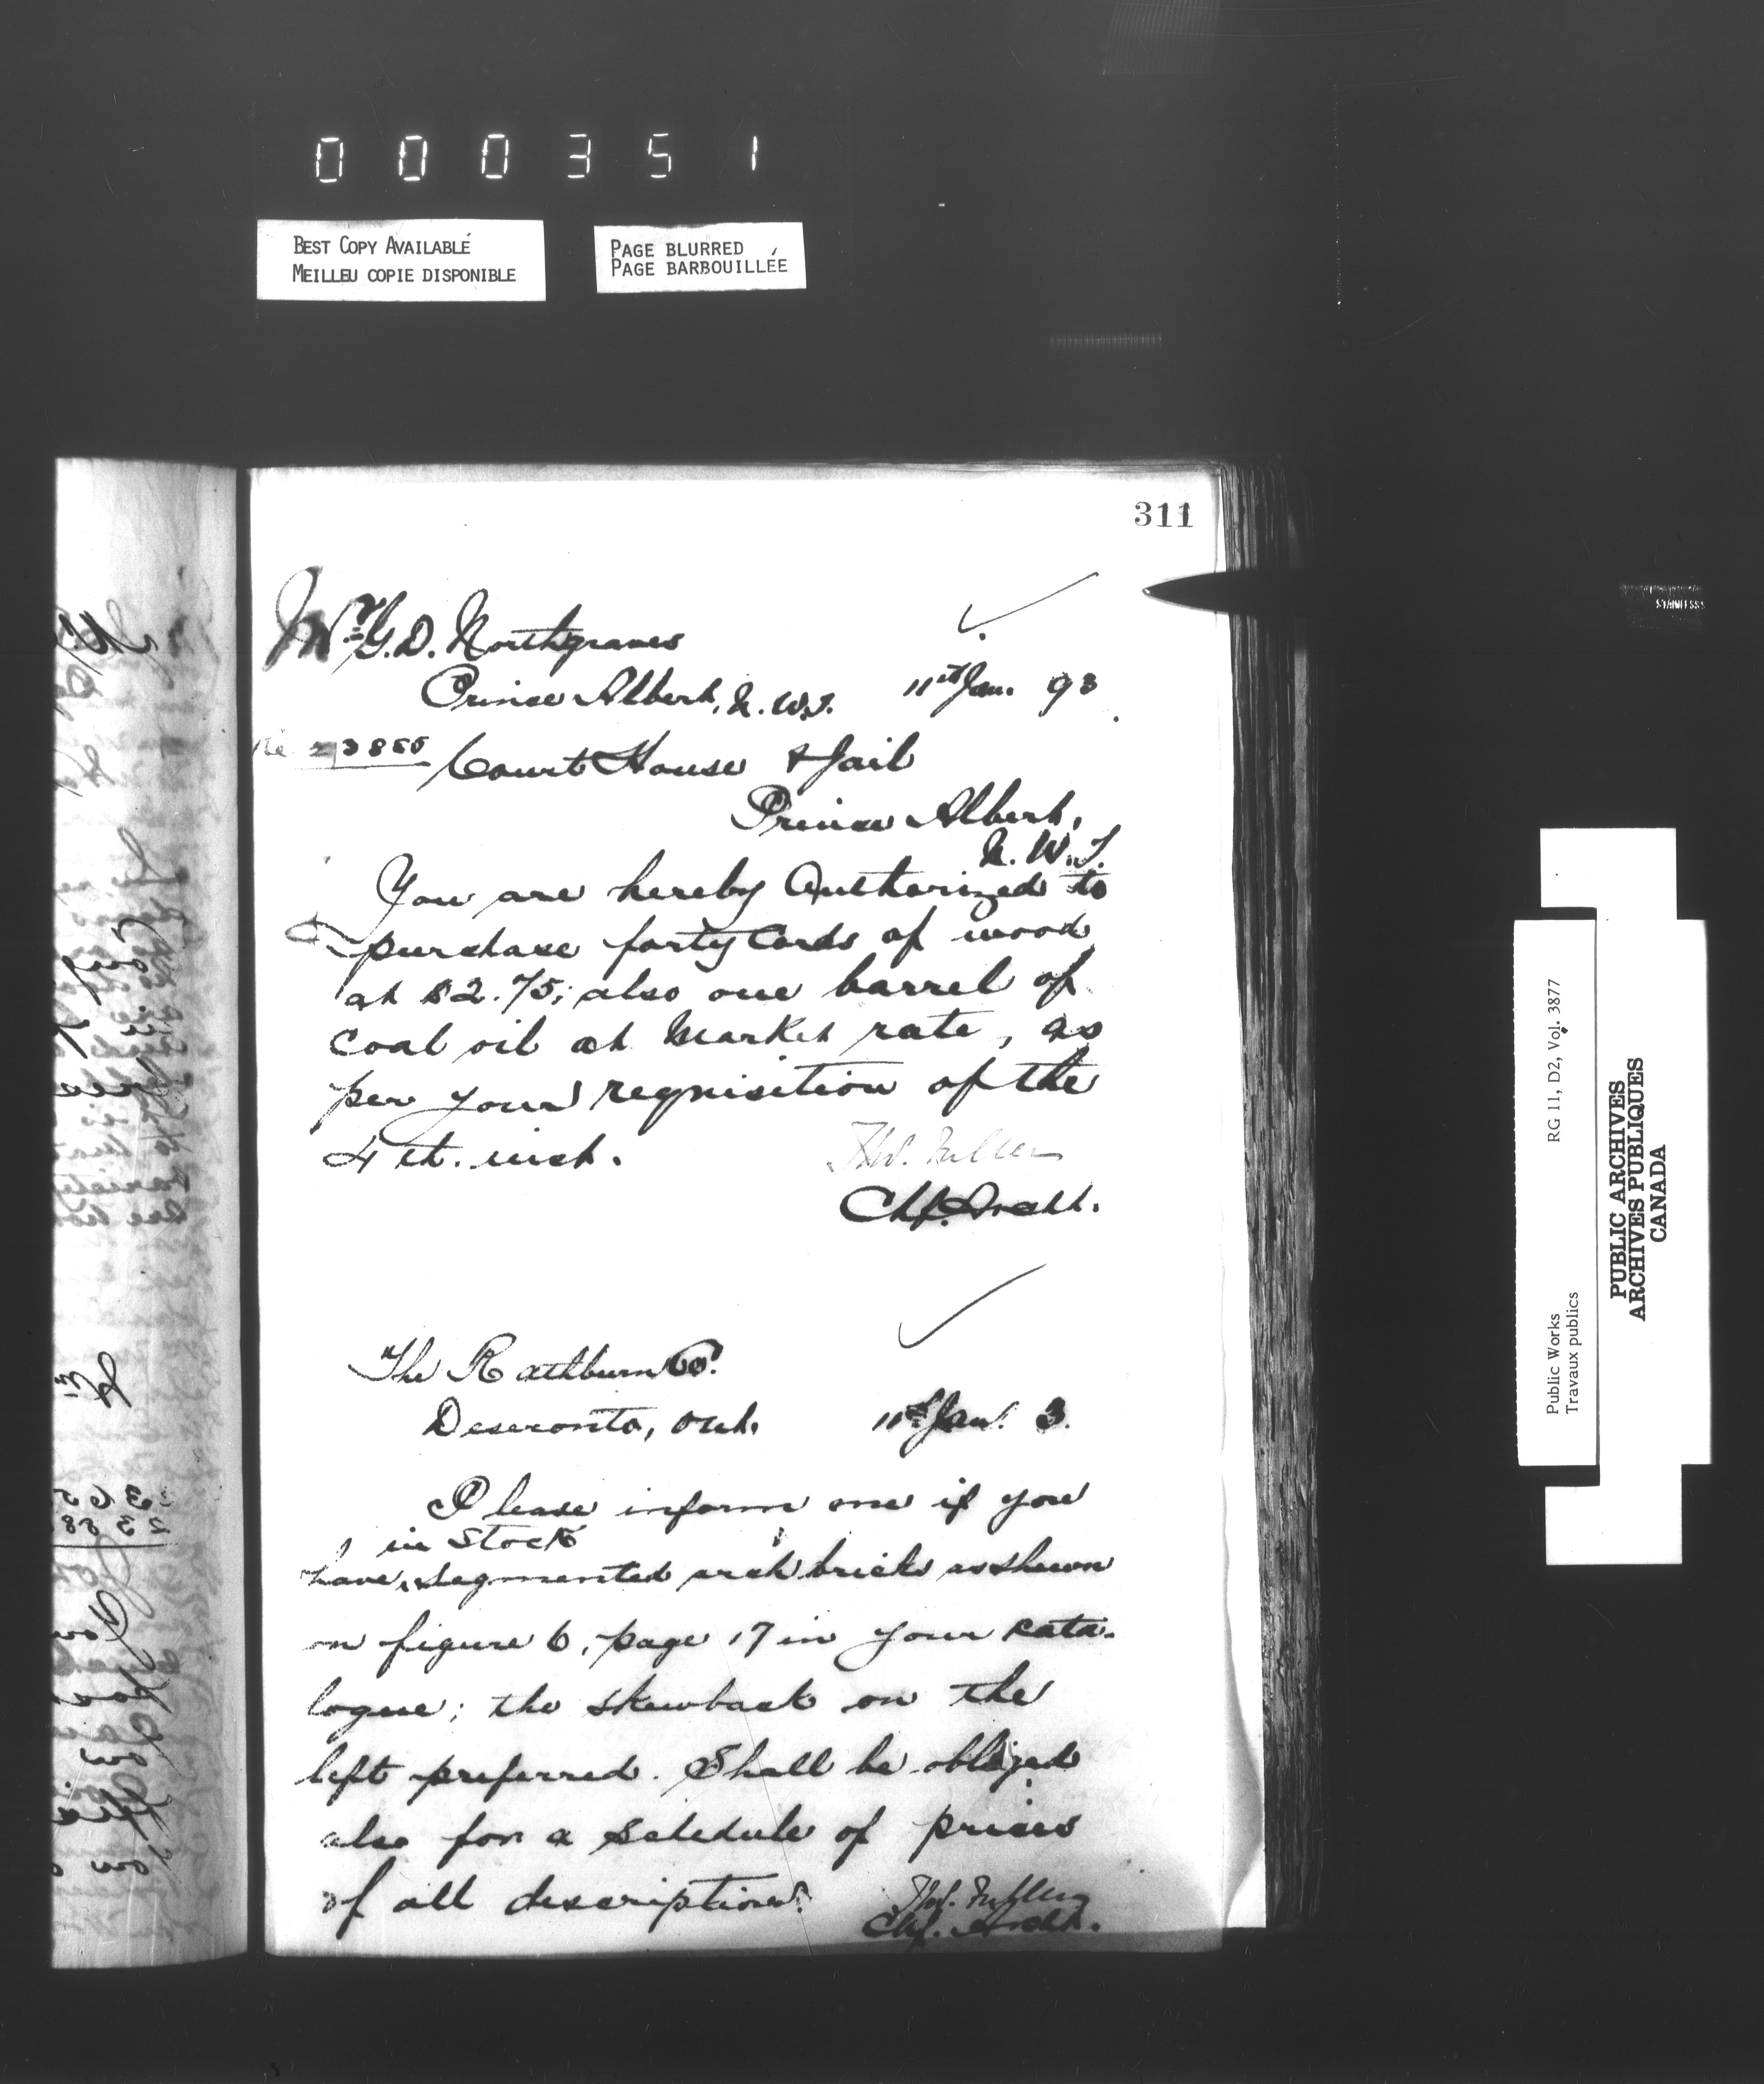 000351
BEST COPY AVAILABLE
MEILLEU COPIE DISPONIBLE
PAGE BLURRED
PAGE BARBOUILLÉE
311
Mr. G. D. Northgraves
Prince Albert, N.W.T. 11th Jan. 93
Re 23855 Court House & Jail
Prince Albert,
N.W.T.
You are hereby Authorized to
purchase forty Cords of wood
at $2.75; also one barrel of
coal oil at Market rate, as
per your requisition of the
4th. inst.
Thos. Fuller
Chf. Archt.
The Rathburn Co.
Deseronto, Ont. 11th Jan. 3.
Please inform me if you
in Stock
have, segmented arch bricks as shewn
on figure 6, page 17 in your cata-
logue; the skewback on the
left preferred. Shall be obliged
also for a schedule of prices
of all descriptions.
Thos. Fuller
Chf. Archt.
STAINLESS
Public Works
Travaux publics
RG 11, D2, Vol. 3877
PUBLIC ARCHIVES
ARCHIVES PUBLIQUES
CANADA